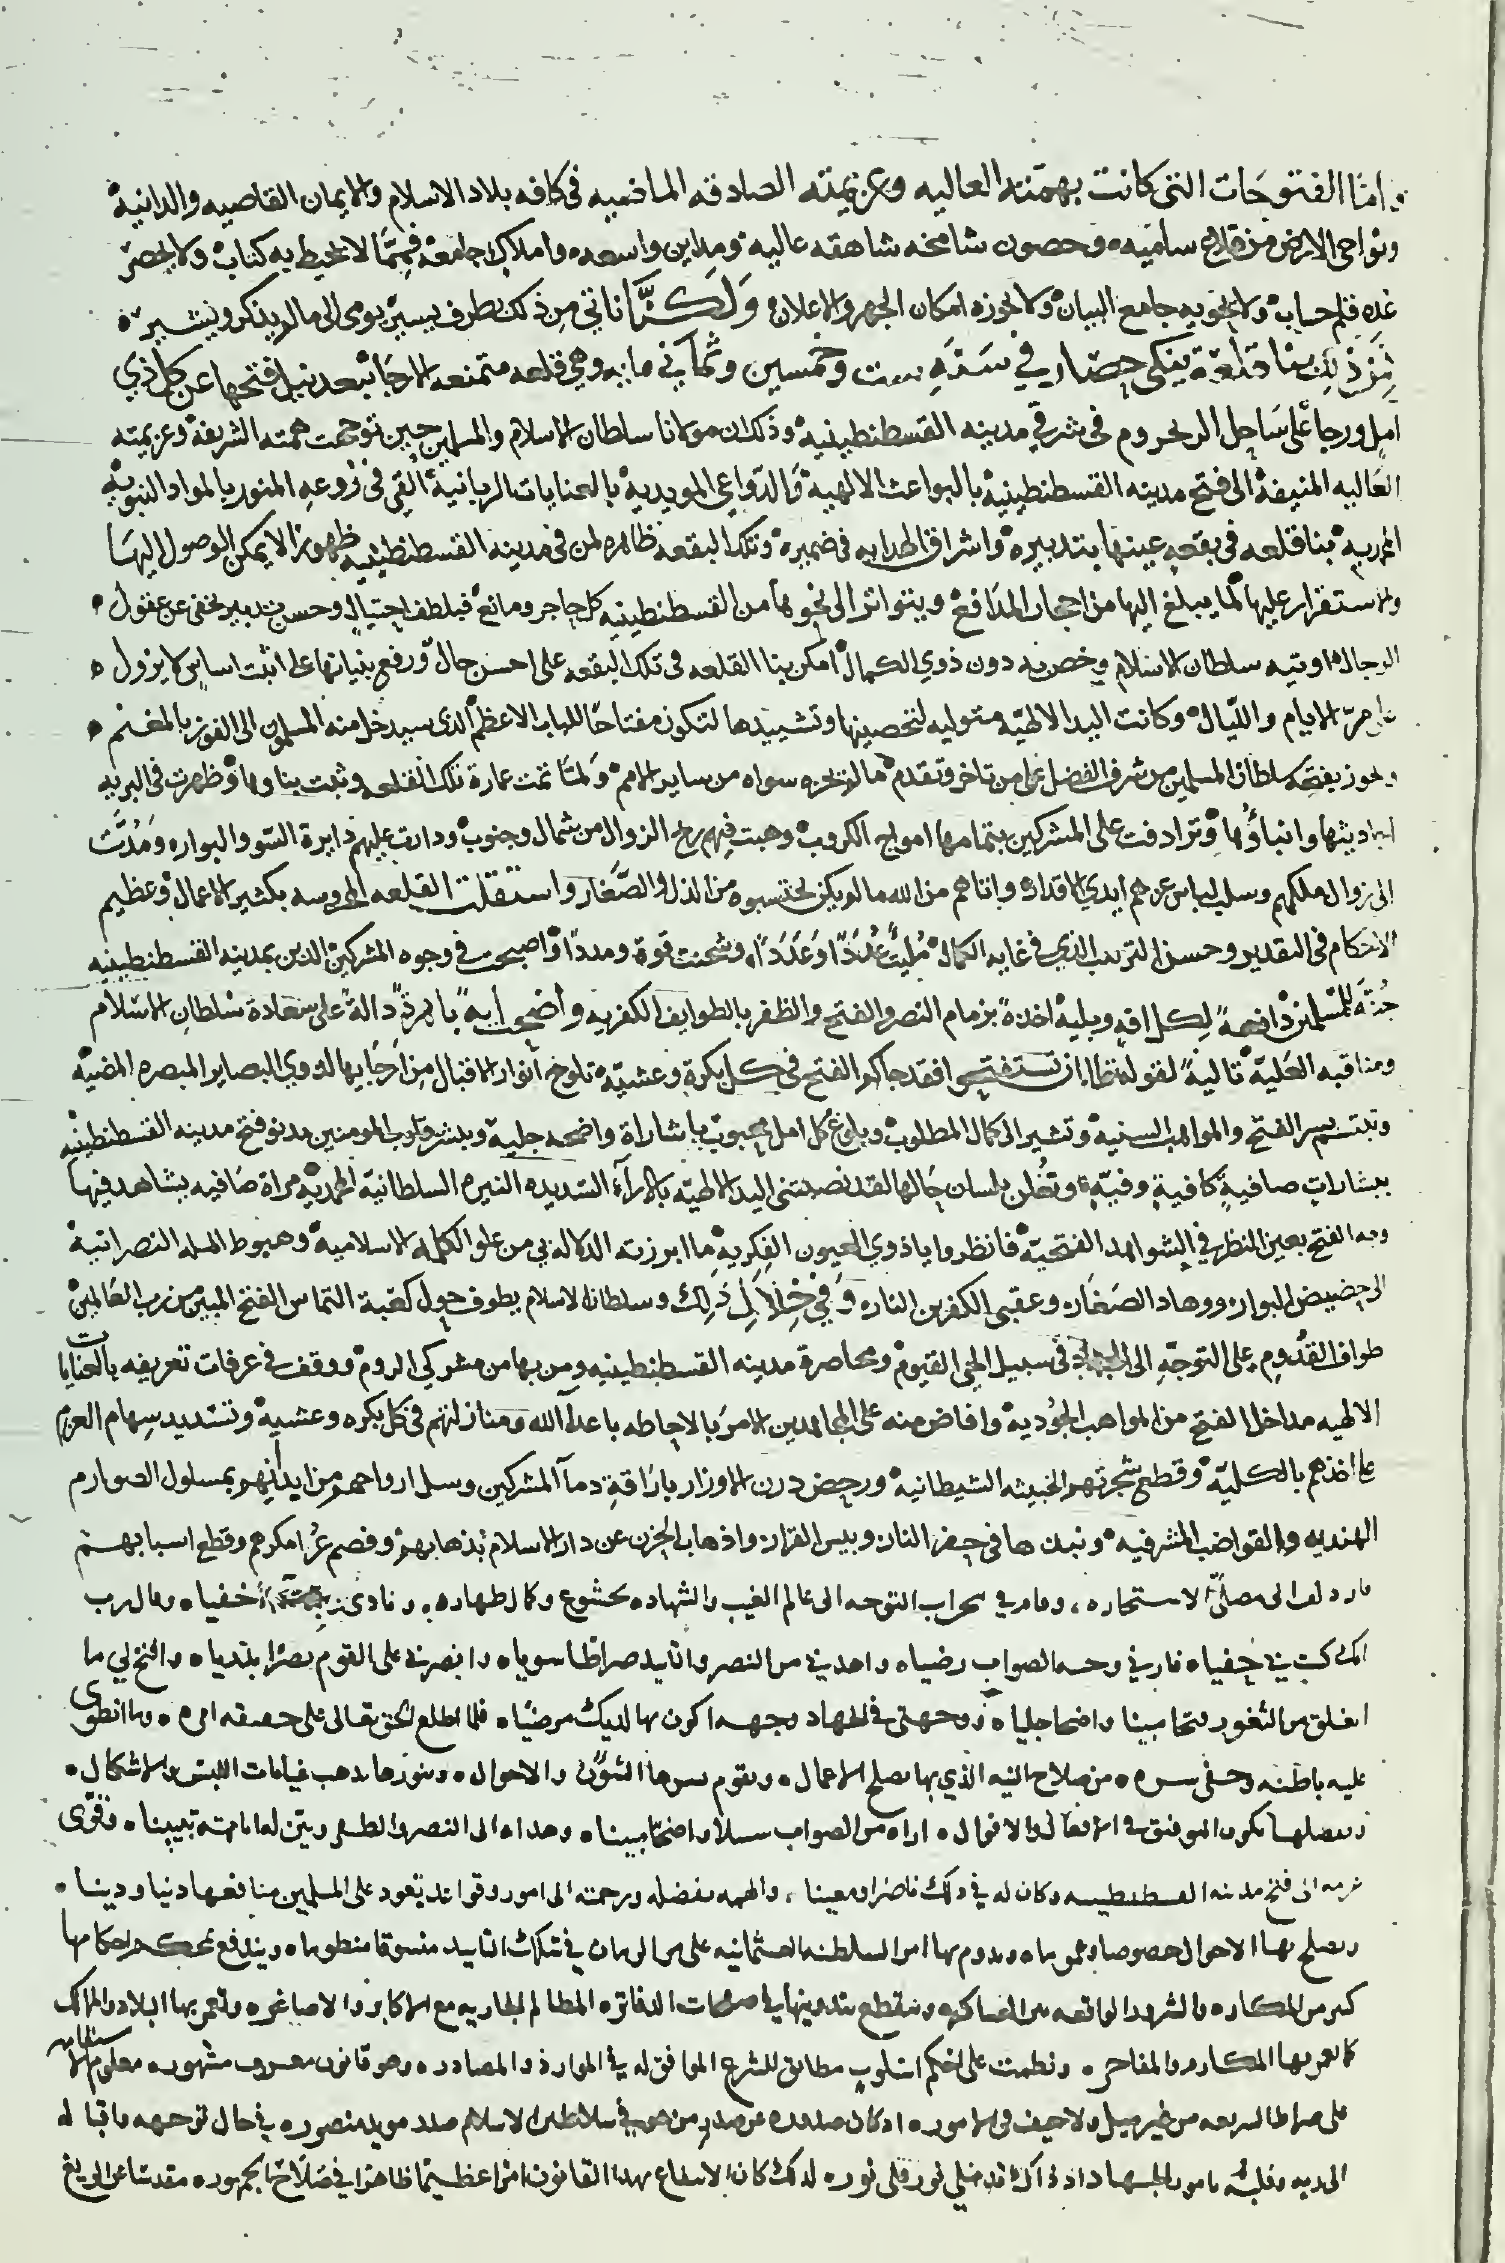 واما الفتوحات التى كانت بهمته العاليه وعزيمته الصادقه الماضيه فى كافه بلاد الاسلام والايمان القاصيه والدانية
ونواحى الارض من قلاع ساميه وحصون شامخه شاهقه عاليه ومداين واسعه واملاك جامعة فمما لا يحيط به كتاب ولا يحصر
عده قلم حساب ولا يحويه جامع البيان ولا يحوزه امكان الجهر والاعلان ولكنا ناتى من ذلك بطرف يسير يومى الى ما لم يذكر ويشير
فمن ذلك بنا قلعة ينكى حصار في سنة ست وخمسين وثماني مايه وهي قلعه متمنعه الارجا يبعد نيل فتحها عن كل ذي
امل ورجا على ساحل البحر وم فى شرقي مدينه القسطنطينية وذلك ان مولانا سلطان الاسلام والمسلمين حين توجهت همته الشريفة وعزيمته
العاليه المنيفة الى فتح مدينه القسطنطينية بالبواعث الالهية والدواعي المويدية بالعنايات الربانية التى فى روعه المنور بالمواد النبوية
المحمدية بنا قلعه فى بقعه عينها بتدبيره واشراق الهدايه فى ضميره وتلك البقعه ظاهره لمن فى مدينه القسطنطينيه ظهورا لا يمكن الوصول اليها
والاستقرار عليها لما يبلغ اليها من احجار المدافع ويتواتر الى نحوها من القسطنطينيه كل حاجر ومانع فبلطف احتيال وحسن تدبير يخفى عن عقول
الرجال اوتيه سلطان الاسلام وخص به دون ذوي الكمال امكن بنا القلعه فى تلك البقعه على احسن حال ورفع بنيانها على اثبت اساس لا يزول
على مر الايام والليال وكانت اليد الالهيه متوليه لتحصينها وتشييدها لتكون مفتاحا للباب الاعظم الذى سيدخل منه المسلمون الى الفوز بالمغنم
ويحوز بفتحه سلطان المسلمين من شرف الفضل على من تاخر وتقدم ما لم يحزه سواه من ساير الامم ولما تمت عمارة تلك القلعه وثبت بناوها وظهرت فى البريه
احاديثها وانباؤها وترادفت على المشركين بتمامها امواج الكروب وهبت فيهم ريح الزوال من شمال وجنوب ودارت عليهم دايرة السو والبوار ومدت
الى زوال ملكهم وسلب لباس عزهم ايدي الاقدار واتاهم من الله ما لم يكن يحتسبوه من الذل والصغار واستقلت القلعه المحروسه بكثير الاعمال وعظيم
الاحكام فى التقدير وحسن الترتيب الذي فى غايه الكمال مليت عددا وعددا وشحنت قوة ومددا واصبحت فى وجوه المشركين الذين بمدينه القسطنطينيه
جنة للمسلمين دافعة لكل افه وبلية اخذة بزمام النصر والفتح والظفر بالطوايف الكفريه واضحت اية باهرة دالة على سعادة سلطان الاسلام
ومناقبه العلية تالية لقوله تعالى ان تستفتحوا فقد جاكم الفتح في كل بكرة وعشية تلوح انوار الاقبال من ارجايها لذوي البصاير المبصره المضية
وتبتسم بسر الفتح والمواهب السنية وتشير الى كمال المطلوب وبلوغ كل امل محبوب باشاراة واضحه جلية وبلشر قلوب المومنين بدنو فتح مدينه القسطنطينيه
ببشارات صافية كافية وفية وتعلن بلسان حالها لقد نصبتنى اليد الالهيه بالارآء السديده النيره السلطانية المحمدية مراة صافيه يشاهد فيها
وجه الفتح بعين النظر في الشواهد الفتحية فانظروا يا ذوي العيون الفكرية ما ابرزته الدلاله بي من علو الكلمه الاسلامية وهبوط المله النصرانية
الى حضيض البوار ووهاد الصغار وعقبى الكفرين النار وفي خلال ذلك وسلطان الاسلام يطوف حول كعبة التماس الفتح المبين من رب العالمين
طواف القدوم على التوجه الى الجهاد فى سبيل الحي القيوم ومحاصرة مدينه القسطنطينيه ومن بها من مشركي الروم ووقف فى عرفات تعريفه بالعنايات
الالهيه مداخل الفتح من المواهب الجودية وافاض منه على المجاهدين الامر بالاحاطه باعدآء الله ومنازلتهم فى كل بكره وعشية وتسديد سهام العزم
على اخذهم بالكلية وقطع شجرتهم الخبيثه الشيطانية ورحض درن الاوزار باراقة دمآ المشركين وسل ارواحهم من ابدانهم بمسلول الصوارم
الهنديه والقواضب المشرفية ونبذها فى حفر النار وبيس القرار واذهاب الحزن عن دار الاسلام بذهابهم وفصم عرا مكرهم وقطع اسبابهم
فازدلف الى مصلى الاستخاره، وقام في محراب التوجه الى عالم الغيب والشهاده بخشوع وكمال طهاره، ونادى ربه خفيا، وقال رب
انك كنت بي حفيا، فارني وجه الصواب رضيا، واهدني من النصر والتاييد صراطا سويا، وانصرني على القوم نصرا بنديا، وافتح لي ما
انغلق من الثغور فتحا مبينا واضحا جليا، ووجهني فى الجهاد وجهه اكون بها لديك مرضيا، فلما اطلع الحق تعالى على حقيقه امره، وما انطوى
عليه باطنه وخفى سره، من صلاح النيه الذي بها تصلح الاعمال، وتقوم بسرها الشؤن والاحوال، وبنورها تذهب غيابات اللبس والاشكال،
وبفضلها يكون الموفق فى الافعال والاقوال، اراه من الصواب سبيلا واضحا مبينا، وهداه الى النصر والظفر وبين له اماراته تبيينا، وقوى
عزمه الى فتح مدينه القسطنطينيه وكان له في ذلك ناصرا ومعينا، والهمه بفضله ورحمته الى امور وقواعد يعود على المسلمين منافعها دنيا ودينا
ويصلح بها الاحوال خصوصا وعموما، ويدوم بها امر السلطنه العثمانيه على مر الزمان في سلك التاييد منسوقا منظوما، ويندفع بحكم احكامها
كثير من المكاره والشرور الواقعه من العساكره وينقطع بتدوينها في صفحات الدفاتر المظالم الجاريه مع الاكابر والاصاغر، وتعمر بها البلاد والممالك
كما تعمر بها المكارم والمفاخر، ونظمت على احكم اسلوب مطابق للشرع الموافق له في الموارد والمصادر، وهو قانون معروف مشهور، معلوم الاستقامه
على صراط الشريعه من غير ميل ولا حيف فى الامور، اذ كان صدوره عن صدر من هو في سلاطين الاسلام صدر مويد منصور، في حال توجهه واقباله
الى ربه وقلبه مامور بالجهاد اذ ذاك قد ملي نور على نور، لذلك كان الانتفاع بهذا القانون امرا عظيما ظاهرا في صلاح الجمهور، مقدسا عن الزيغ